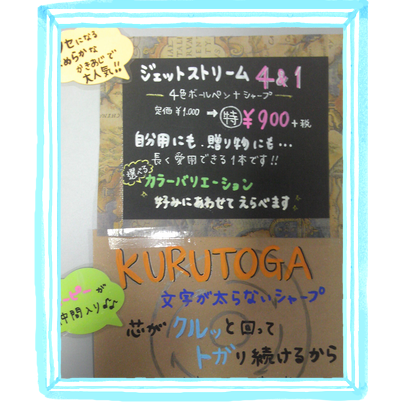 セになる
めらかな
かきあじで
大人気!!
ジェットストリーム 4&1
4色ボールペン+シャープ
定価¥1,000 → 特 ¥900+税
自分用にも、贈り物にも…
長く愛用できる1本です!!
選べる
カラーバリエーション
好みにあわせてえらべます
KURUTOGA
文字が太らないシャープ
が
仲間入り♪♪
芯がクルッと回って
トガり続けるから